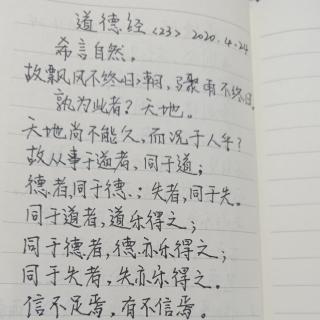 道德经<23> 2020.4.24
希言自然。
故飘风不终<日>朝，骤雨不终日。
孰为此者？天地。
天地尚不能久，而况于人乎？
故从事于道者，同于道；
德者，同于德.；失者，同于失。
同于道者，道乐得之；
同于德者，德亦乐得之；
同于失者，失亦乐得之。
信不足焉，有不信焉。